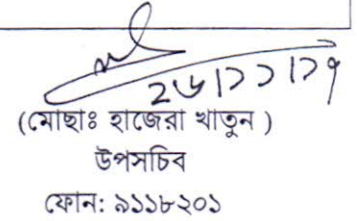 ২৬/১১/১৭
(মোছাঃ হাজেরা খাতুন )
উপসচিব
ফোন: ৯১১৮২০১